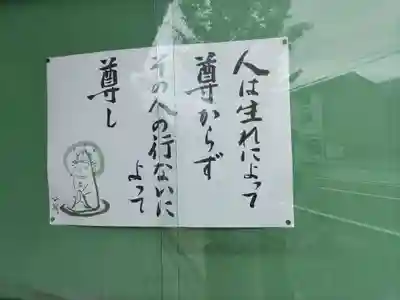 人は生れによって
尊からず
その人の行ないに
よって
尊し